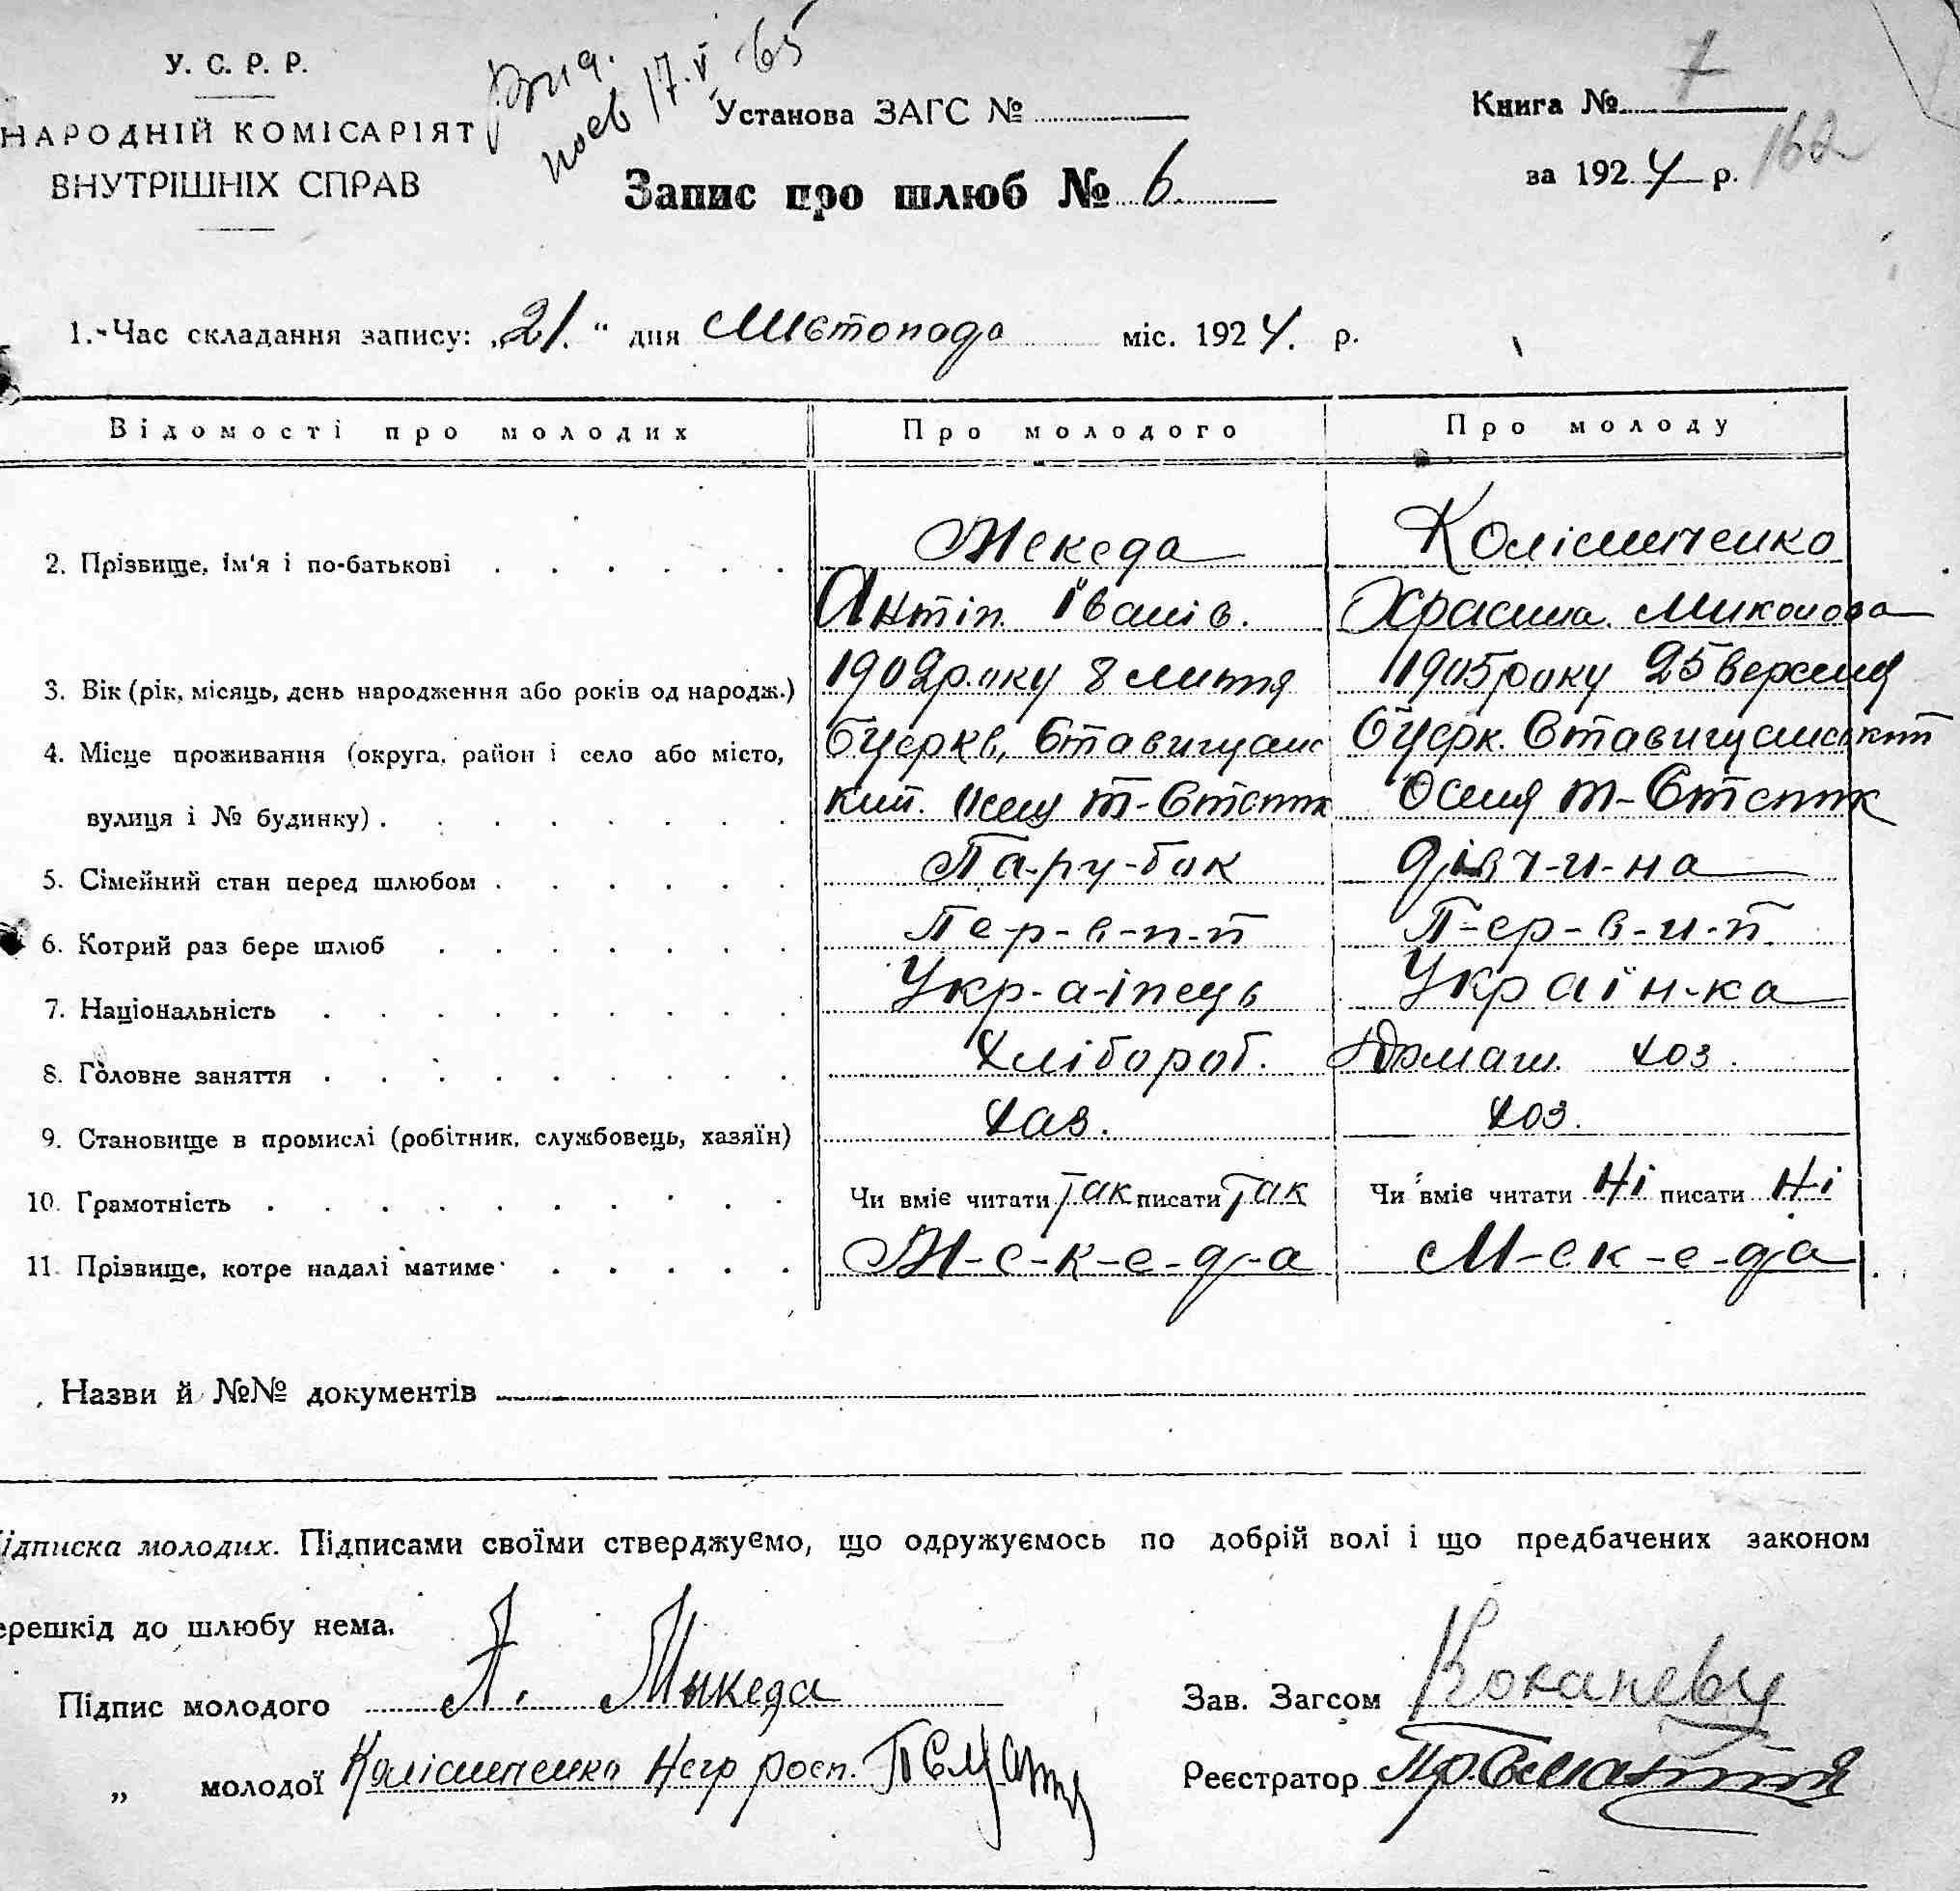 У. С. Р. Р.
НАРОДНІЙ КОМІСАРІЯТ
ВНУТРІШНІХ СПРАВ
17.V-65
Установа ЗАГС №
Запис про шлюб № 6.
Книга № 7
за 1924 р.
162
1. Час складання запису: „21.“ дня Листопада міс. 1924. р.
Відомості про молодих Про молодого Про молоду
2. Прізвище, ім'я і по-батькові Мекеда Колісниченко
Антіп. Іванів. Миколова
3. Вік (рік, місяць, день народження або років од народж.) 1902 року 8 липня 1905 року 25 вересня
4. Місце проживання (округа, район і село або місто, Бцеркв, Ставищанс Бцерк. Ставищанський
вулиця і № будинку) кий.
5. Сімейний стан перед шлюбом Па-ру-бок дівч-и-на
6. Котрий раз бере шлюб Пе-р-в-и-й П-ер-в-и-й
7. Національність Укр-а-інець Україн-ка
8. Головне заняття Хлібороб. Домаш. хоз.
9. Становище в промислі (робітник, службовець, хазяїн) хаз. хоз.
10. Грамотність Чи вміє читати так писати так Чи вміє читати Ні писати Ні
11. Прізвище, котре надалі матиме М-е-к-е-д-а М-ек-е-да
Назви й №№ документів
ідписка молодих. Підписами своїми стверджуємо, що одружуємось по добрій волі і що предбачених законом
ерешкід до шлюбу нема.
Підпис молодого А. Микеда Зав. Загсом
„ молодої Колісниченко Негр росп. Реєстратор